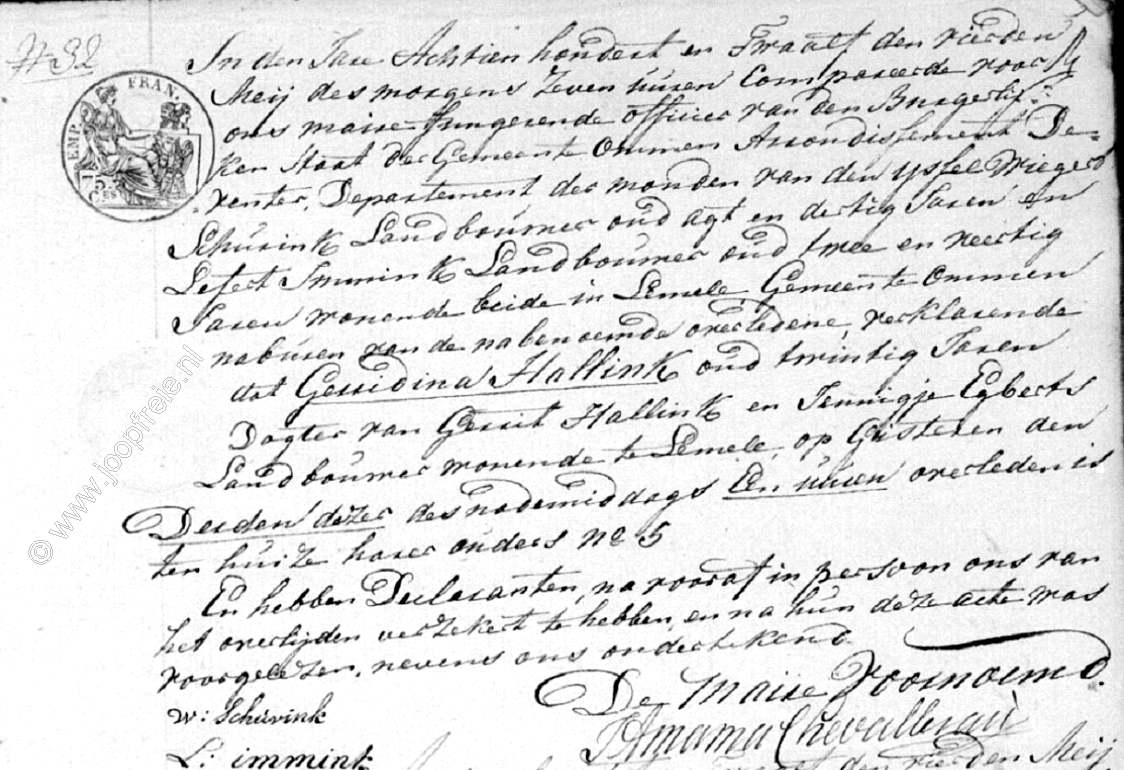 N 32
In den Jare Achtien hondert en Twaalf den vierden
Meij des morgens Zeven uuren Compareerde voor
ons maire fungerende officier van den Burgerlij-
ken Staat der Gemeente Ommen Arrondissement De-
venter, Departement der monden van den yssel Wieger
Schurink Landbouwer oud agt en dertig Jaren en
Lefert Immink Landbouwer oud twee en veertig
Jaren wonende beide in Lemele Gemeente Ommen
naburen van de nabenoemde overledene, verklarende
dat Gerridina Hallink oud twintig Jaren
Dogter van Gerrit Hallink en Jennigje Egberts
Landbouwer wonende te Lemele, op Gisteren den
Derden dezer des nademiddags Een uuren overleden is
ten huize harer ouders no 5
En hebben Declaranten, na vooraf in persoon ons van
het overlijden verzekert te hebben, en na hun deze acte was
voorgelezen, nevens ons ondertekend
De Maire voornoemd.
w: Schurink
Amama Chevallerau
L: immink
den vierden Meij
TIMP. FRAN.
© www.joopfreie.nl